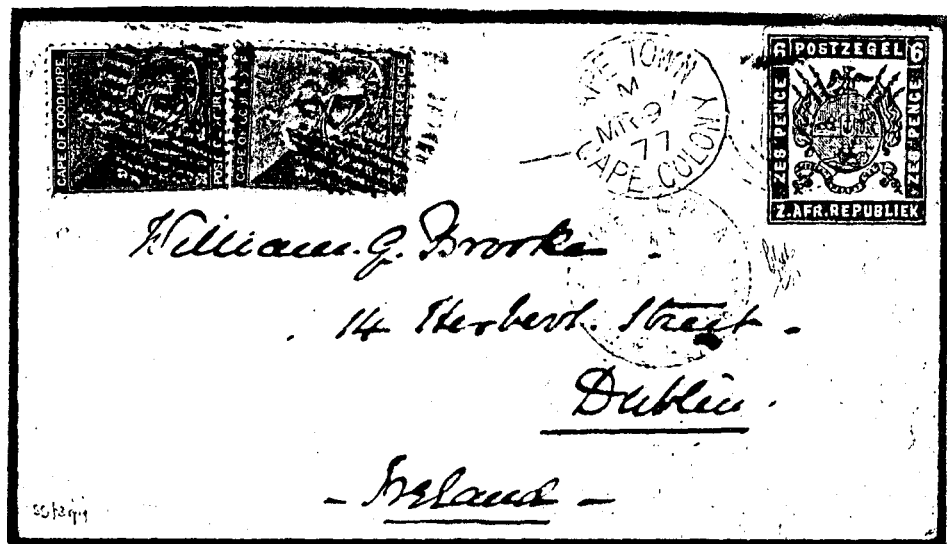 CAPE OF GOOD HOPE
POSTAGE FOURPENCE
SIXPENCE
CAPE TOWN
M
MR 9
77
CAPE COLONY
6 POSTZEGEL 6
ZES PENCE
ZES PENCE
Z. AFR. REPUBLIEK
William. G. Brooke
14 Herbert. Street -
Dublin.
- Ireland -